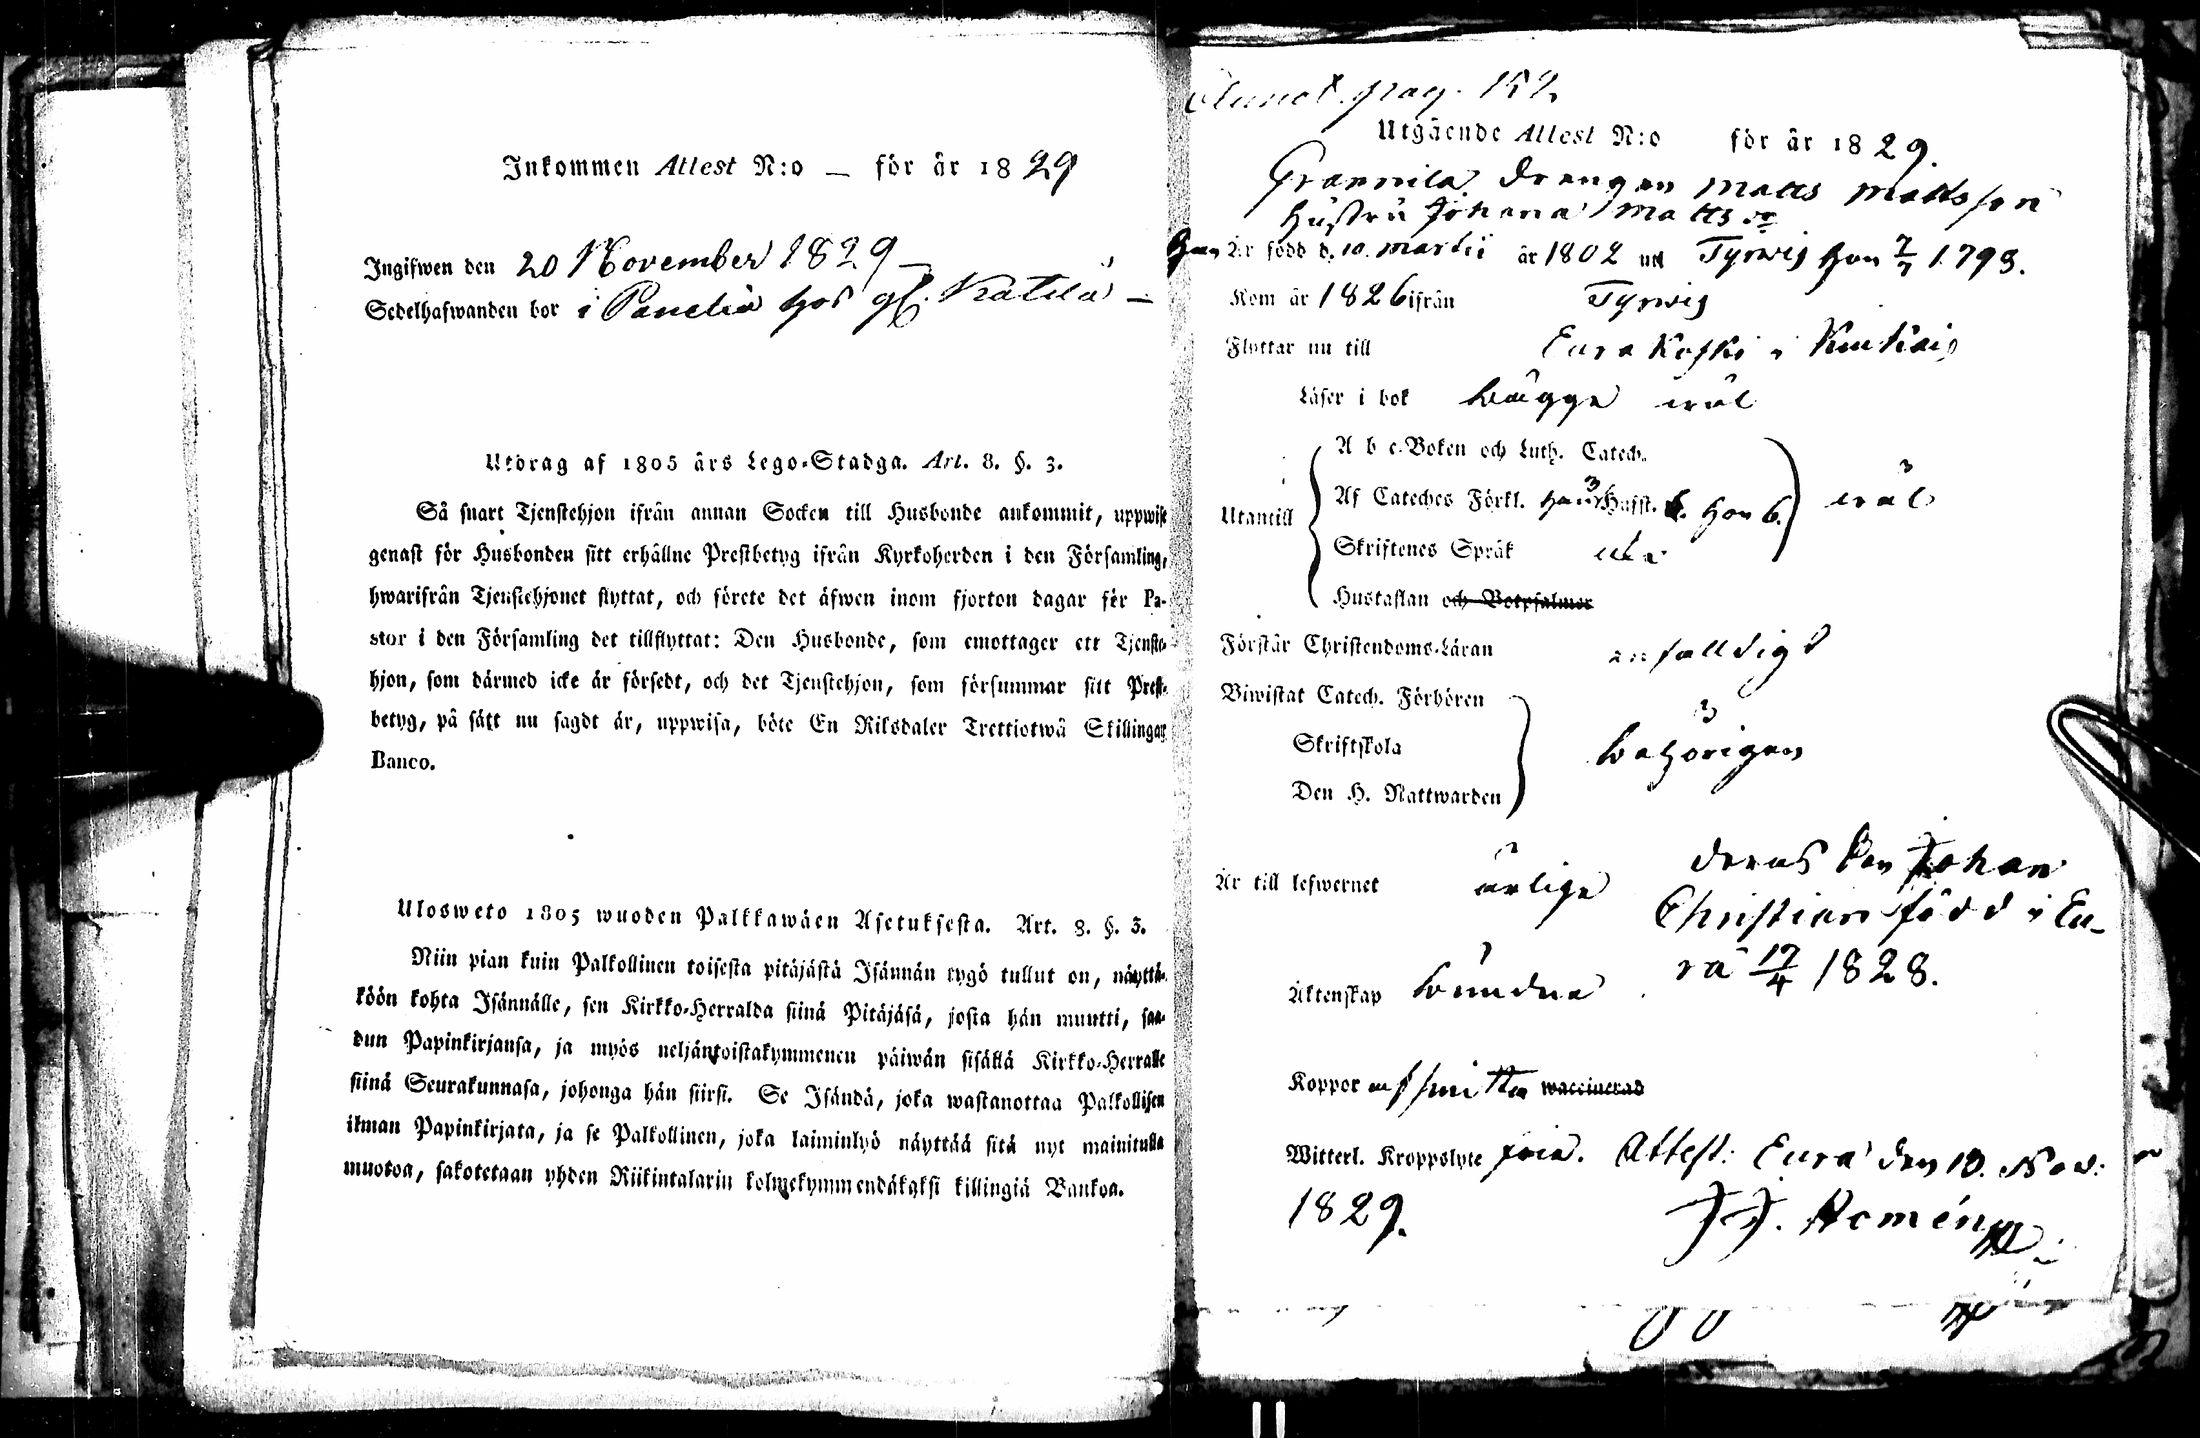 Inkommen Attest N:o — för år 1829
Ingifwen den 20 November 1829 —
Sedelhafwanden bor i Panelia hos gl. Katila —
Utdrag af 1805 års Lego-Stadga. Art. 8. §. 3.
Så snart Tjenstehjon ifrån annan Socken till Husbonde ankommit, uppwise
genast för Husbonden sitt erhållne Prestbetyg ifrån Kyrkoherden i den Församling,
hwarifrån Tjenstehjonet flyttat, och förete det äfwen inom fjorton dagar för Pa-
stor i den Församling det tillflyttat: Den Husbonde, som emottager ett Tjenste-
hjon, som därmed icke är försedt, och det Tjenstehjon, som försummar sitt Prest-
betyg, på sätt nu sagdt är, uppwisa, böte En Riksdaler Trettiotwå Skillingar
Banco.
Ulosweto 1805 wuoden Palkkawäen Asetuksesta. Art. 8. §. 3.
Niin pian kuin Palkollinen toisesta pitäjästä Isännän tygö tullut on, näyttä-
köön kohta Isännälle, sen Kirkko-Herralda siinä Pitäjäsä, josta hän muutti, saa-
dun Papinkirjansa, ja myös neljäntoistakymmenen päiwän sisällä Kirkko-Herralle
siinä Seurakunnasa, johonga hän siirsi. Se Isändä, joka wastanottaa Palkollisen
ilman Papinkirjata, ja se Palkollinen, joka laiminlyö näyttää sitä nyt mainitulla
muotoa, sakotetaan yhden Riikintalarin kolmekymmendäkaksi killingiä Bankoa.
Annot. pag. 152
Utgående Attest N:o för år 1829.
Drengen Matts Mattsson
Hustru Johana Matts dr
Han Är född d. 10 Martii år 1802 uti Tyrwis Hon 7/7 1793.
Kom år 1826 ifrån Tyrwis
Flyttar nu till Eura Kofki i
Läser i bok bägge wäl
A b c-Boken och Luth. Catech.
Utantill Af Cateches Förkl. Han 3 Hufst. Hon 6. wäl
Skriftenes Språk
Hustaflan och Botpsalmer
Förstår Christendoms-Läran enfalldigt
Biwistat Catech. Förhören
Skriftskola behörigen
Den H. Nattwarden
Är till lefwernet ärlige deras Son Johan
Christian född i Eu-
ra 17/4 1828.
Äktenskap bundne
Koppor waccinerad
Witterl. Kroppslyte fria. Attest. Eura den 10. Nov:
1829.